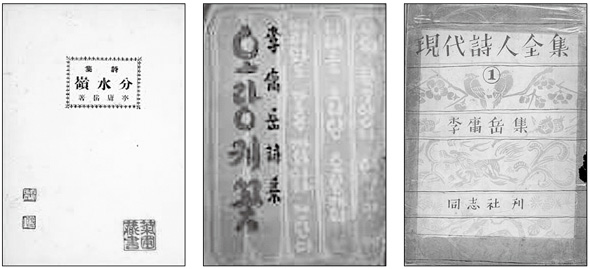 詩集
分水嶺
李庸岳著
李庸岳詩集
오랑캐꽃
現代詩人全集
①
李庸岳集
同志社刊